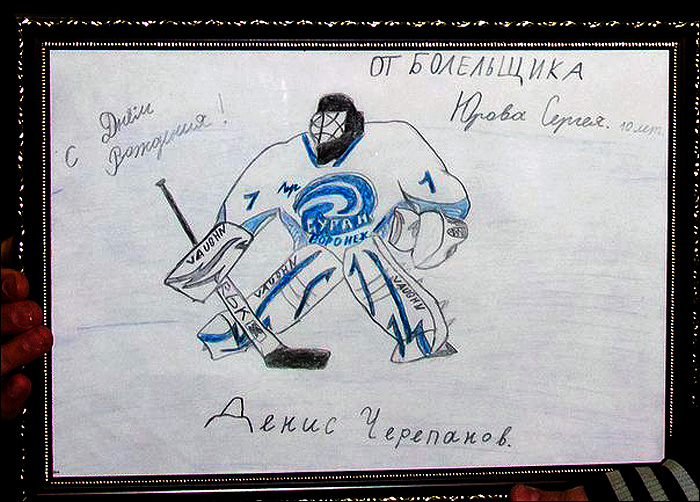 ОТ БОЛЕЛЬЩИКА
Юрова Сергея. 10 лет.
С Днём
Рождения!
7
1
БУРАН
ВОРОНЕЖ
VAUGHN
VAUGHN
VAUGHN
Денис Черепанов.